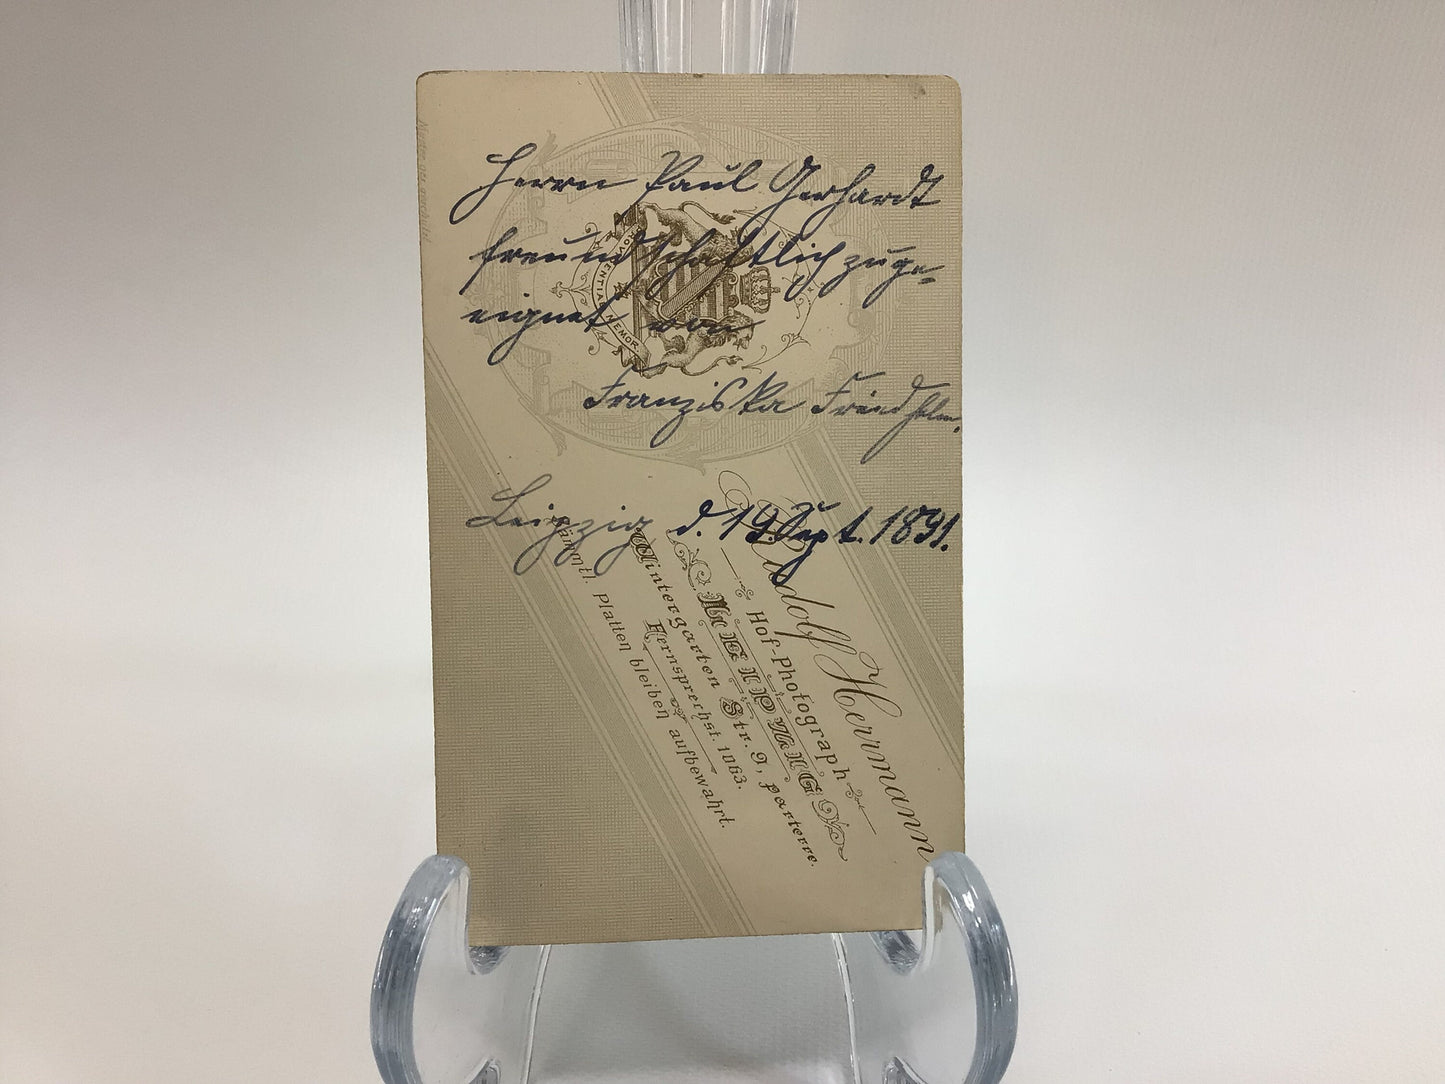 Herrn Paul Gerhardt
freundschaftlich zuge-
eignet von
Franziska Friedhelm.
Leipzig d. 19. Sept. 1891.
PROVIDENTIAE MEMOR
Rudolf Herrmann
Hof-Photograph
LEIPZIG
Wintergarten Str. 9, parterre.
Fernsprechst. 1063.
Sämmtl. Platten bleiben aufbewahrt.